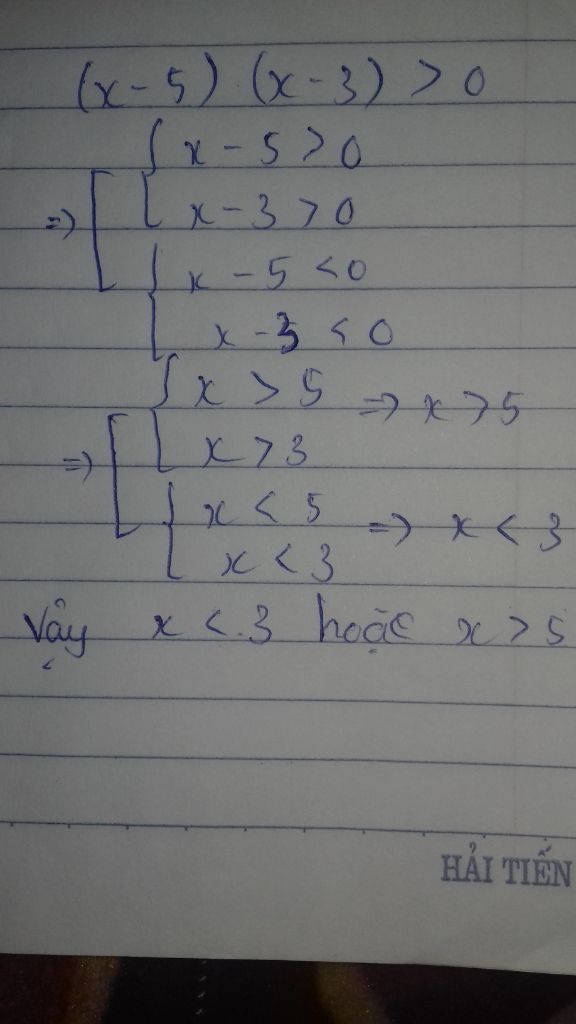 (x - 5) (x - 3) > 0
x - 5 > 0
=> x - 3 > 0
x - 5 < 0
x - 3 < 0
x > 5 => x > 5
=> x > 3
x < 5 => x < 3
x < 3
Vậy x < 3 hoặc x > 5
HẢI TIẾN